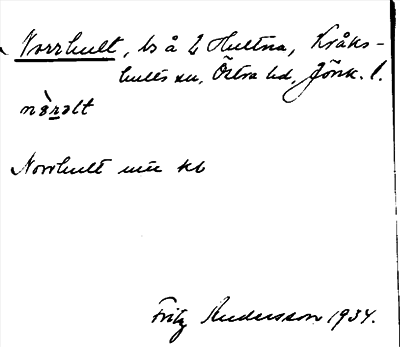 Norrhult, bs å 2 Hultna, Kråks-
hults sn, Östra hd, Jönk. l.
nòrəlt
Norrhult mtu kb
Fritz Andersson 1934.